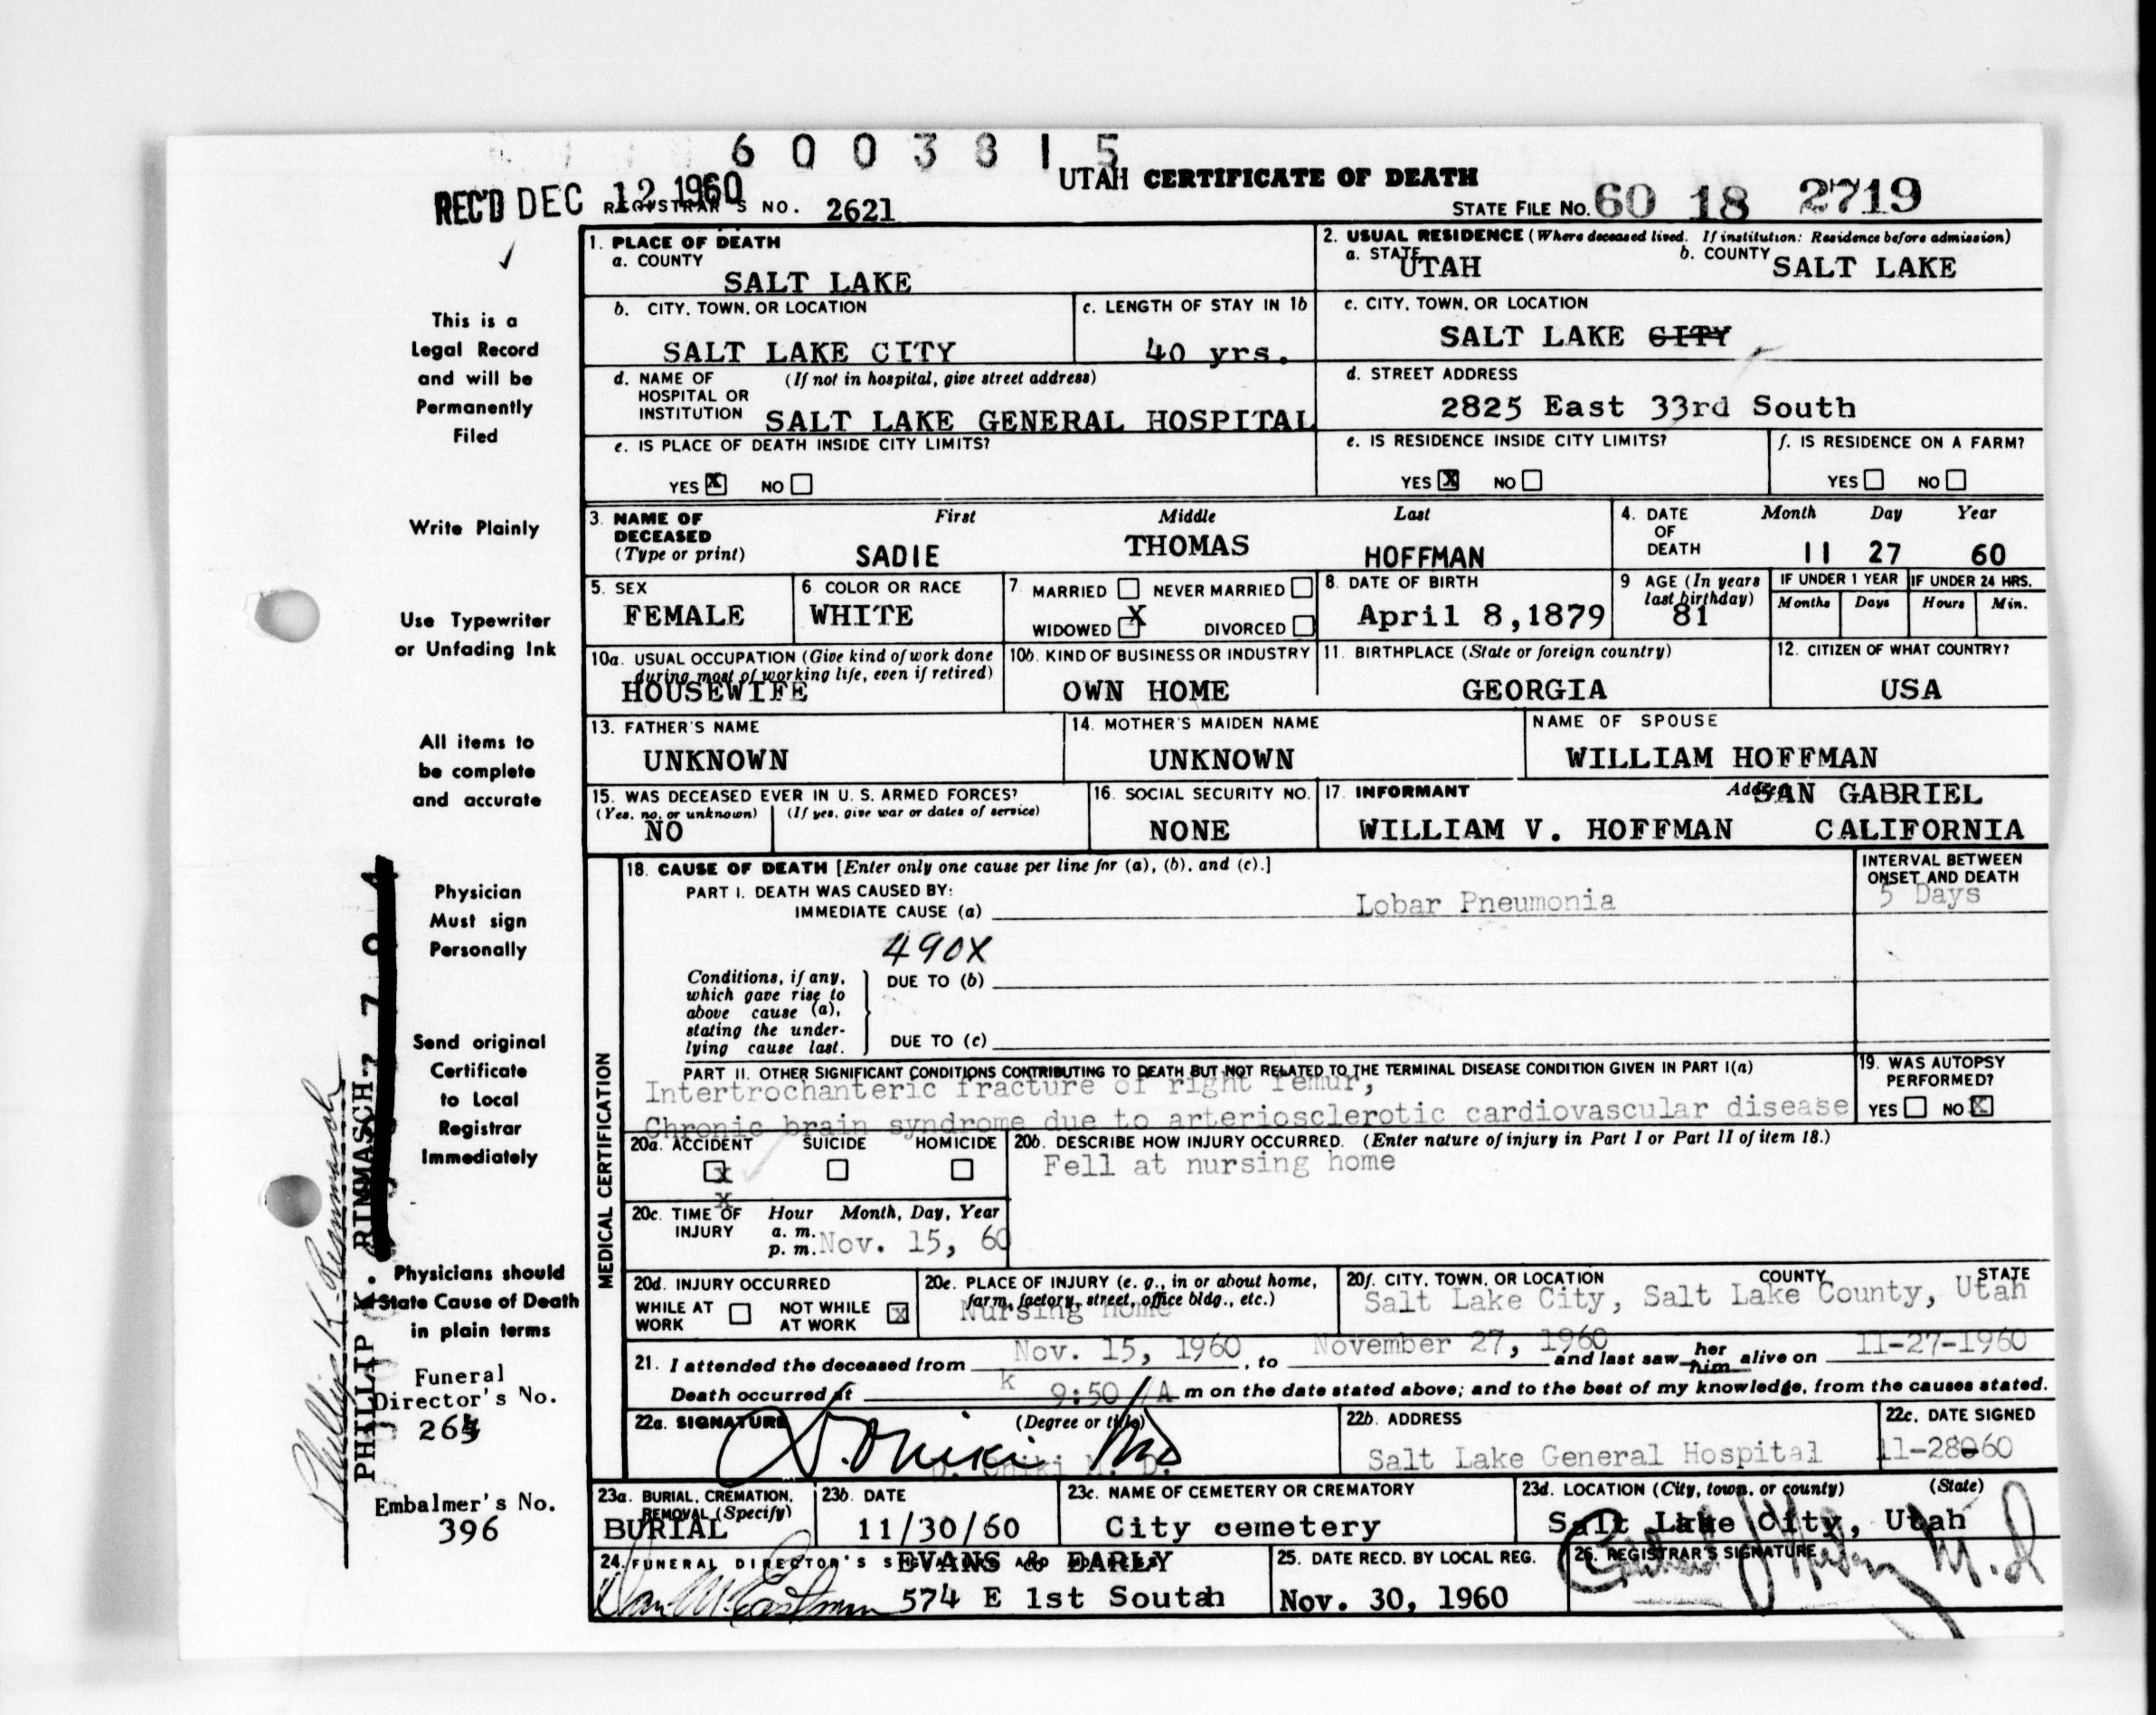 6 0 0 3 8 1 5
UTAH CERTIFICATE OF DEATH
REC'D DEC 12 1960
REGISTRAR'S NO. 2621
STATE FILE NO. 60 18 2719
This is a
Legal Record
and will be
Permanently
Filed
Write Plainly
Use Typewriter
or Unfading Ink
All items to
be complete
and accurate
Physician
Must sign
Personally
Send original
Certificate
to Local
Registrar
Immediately
Physicians should
State Cause of Death
in plain terms
Funeral
Director's No.
Embalmer's No.
396
PHILLIP K. RIMMASCH
Phillip K. Rimmasch
1. PLACE OF DEATH
a. COUNTY
SALT LAKE
2. USUAL RESIDENCE (Where deceased lived. If institution: Residence before admission)
a. STATE UTAH
b. COUNTY SALT LAKE
b. CITY, TOWN, OR LOCATION
SALT LAKE CITY
c. LENGTH OF STAY IN 1b
40 yrs.
c. CITY, TOWN, OR LOCATION
SALT LAKE CITY
d. NAME OF HOSPITAL OR INSTITUTION (If not in hospital, give street address)
SALT LAKE GENERAL HOSPITAL
d. STREET ADDRESS
2825 East 33rd South
e. IS PLACE OF DEATH INSIDE CITY LIMITS?
YES X NO
e. IS RESIDENCE INSIDE CITY LIMITS?
YES X NO
f. IS RESIDENCE ON A FARM?
YES NO
3. NAME OF DECEASED (Type or print)
First Middle Last
SADIE THOMAS HOFFMAN
4. DATE OF DEATH
Month Day Year
11 27 60
5. SEX
FEMALE
6. COLOR OR RACE
WHITE
7. MARRIED NEVER MARRIED
WIDOWED X DIVORCED
8. DATE OF BIRTH
April 8,1879
9 AGE (In years last birthday)
81
IF UNDER 1 YEAR
Months Days
IF UNDER 24 HRS.
Hours Min.
10a. USUAL OCCUPATION (Give kind of work done during most of working life, even if retired)
HOUSEWIFE
10b. KIND OF BUSINESS OR INDUSTRY
OWN HOME
11. BIRTHPLACE (State or foreign country)
GEORGIA
12. CITIZEN OF WHAT COUNTRY?
USA
13. FATHER'S NAME
UNKNOWN
14. MOTHER'S MAIDEN NAME
UNKNOWN
NAME OF SPOUSE
WILLIAM HOFFMAN
15. WAS DECEASED EVER IN U. S. ARMED FORCES?
(Yes, no, or unknown) (If yes, give war or dates of service)
NO
16. SOCIAL SECURITY NO.
NONE
17. INFORMANT Address
WILLIAM V. HOFFMAN SAN GABRIEL CALIFORNIA
MEDICAL CERTIFICATION
18. CAUSE OF DEATH [Enter only one cause per line for (a), (b), and (c).]
PART I. DEATH WAS CAUSED BY:
IMMEDIATE CAUSE (a) Lobar Pneumonia
INTERVAL BETWEEN ONSET AND DEATH
5 Days
490X
Conditions, if any, which gave rise to above cause (a), stating the underlying cause last.
DUE TO (b)
DUE TO (c)
PART II. OTHER SIGNIFICANT CONDITIONS CONTRIBUTING TO DEATH BUT NOT RELATED TO THE TERMINAL DISEASE CONDITION GIVEN IN PART I(a)
Intertrochanteric fracture of right femur,
Chronic brain syndrome due to arteriosclerotic cardiovascular disease
19. WAS AUTOPSY PERFORMED?
YES NO X
20a. ACCIDENT SUICIDE HOMICIDE
X
x
20b. DESCRIBE HOW INJURY OCCURRED. (Enter nature of injury in Part I or Part II of item 18.)
Fell at nursing home
20c. TIME OF INJURY
Hour Month, Day, Year
a. m.
p. m. Nov. 15, 60
20d. INJURY OCCURRED
WHILE AT WORK NOT WHILE AT WORK X
20e. PLACE OF INJURY (e. g., in or about home, farm, factory, street, office bldg., etc.)
Nursing Home
20f. CITY, TOWN, OR LOCATION COUNTY STATE
Salt Lake City, Salt Lake County, Utah
21. I attended the deceased from Nov. 15, 1960, to November 27, 1960 and last saw her him alive on 11-27-1960
Death occurred at k 9:50 A m on the date stated above; and to the best of my knowledge, from the causes stated.
22a. SIGNATURE (Degree or title)
D. Chiki M. D.
22b. ADDRESS
Salt Lake General Hospital
22c. DATE SIGNED
11-28-60
23a. BURIAL, CREMATION, REMOVAL (Specify)
BURIAL
23b. DATE
11/30/60
23c. NAME OF CEMETERY OR CREMATORY
City cemetery
23d. LOCATION (City, town, or county) (State)
Salt Lake City, Utah
24. FUNERAL DIRECTOR'S SIGNATURE AND ADDRESS
EVANS & EARLY
574 E 1st South
25. DATE RECD. BY LOCAL REG.
Nov. 30, 1960
26. REGISTRAR'S SIGNATURE